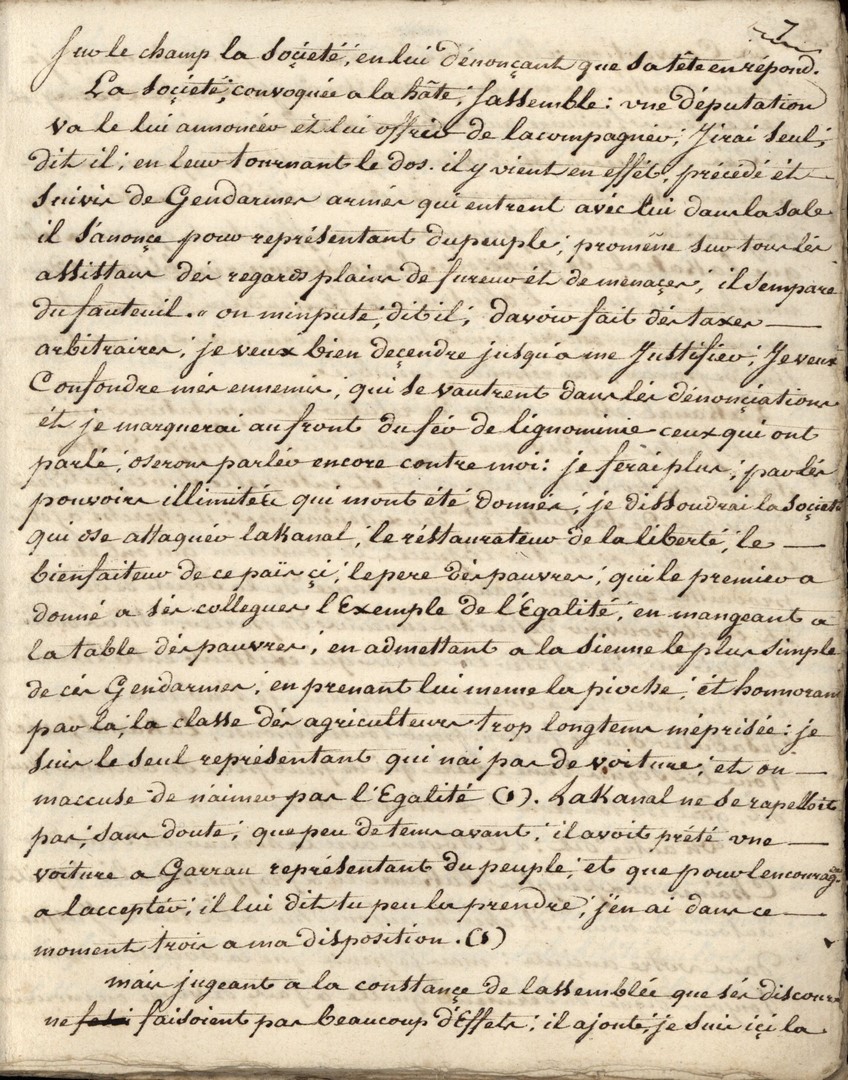 7
Sur le champ la soçieté, en lui dénonçant que sa tête en répond.
La soçieté, convoquée a la hâte, s'assemble: une députation
va le lui annoncer et lui offrir de lacompagner; J'irai seul;
dit il; en leur tournant le dos. il y vient en effét, précédé ét
suivis de Gendarmes armés qui entrent avéc lui dans la sale
il s'anonçe pour représentant du peuple; proméne sur tous lés
assistans dés regards plains de fureur ét de menaçes; il s'empare
du fauteuil. " on minpute, dit il; davoir fait dés taxes
arbitraires; je veux bien deçendre jusqu'a me Justifier; Je veux
Confondre més ennemis; qui se vautrent dans lés dénonçiations
ét je marquerai au front du fér de lignominie ceux qui ont
parlé, oserons parlér encore contre moi: je férai plus; par lés
pouvoirs illimités qui mont été donnés; je dissoudrai la soçieté
qui ose attaquér laKanal, le réstaurateur de la liberté, le
bienfaiteur de ce païs çi; le pere dés pauvres; qui le premier a
donné a sés collegues l'Exemple de l'Egalité; en mangeant a
la table dés pauvres; en admettant a la sienne le plus simple
de cés Gendarmes; en prenant lui meme la pioche; ét honnorant
par la, la classe dés agriculteurs trop longtems méprisée: je
suis le seul représentant qui nai pas de voiture; et on
maccuse de n'aimer pas l'Egalité (1). LaKanal ne se rapelloit
pas; sans doute; que peu de tems avant; il avoit prété une
voiture a Garrau représentant du peuple; et que pour lencourager
a laccepter; il lui dit tu peu la prendre; j'en ai dans ce
moment trois a ma disposition. (1)
mais jugeant a la constançe de lassemblée que sés discours
ne faisoient pas beaucoup d'Effets; il ajoute, je suis içi la